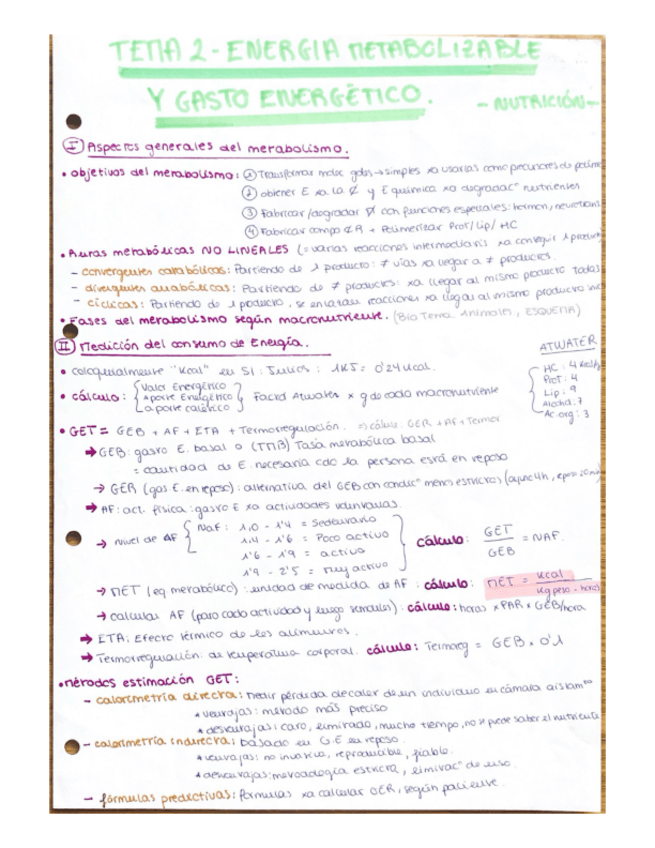 TEMA 2 - ENERGIA METABOLIZABLE
Y GASTO ENERGÉTICO. - NUTRICIÓN -
I Aspectos generales del metabolismo.
• Objetivos del metabolismo: ① Transformar moléc → simples xa usarlas como precursores de
② obtener E xa la y E química xa degradac° nutrientes
③ Fabricar/degradar con funciones especiales: hormon,
④ Fabricar comp + Polimerizar Prot/Lip/HC
• Rutas metabólicas NO LINEALES (= varias reacciones intermediarias xa conseguir 1 product
- convergentes catabólicas: Partiendo de 1 producto: ≠ vías xa llegar a ≠ productos.
- divergentes anabólicas: Partiendo de ≠ productos: xa llegar al mismo producto todas
- cíclicas: Partiendo de 1 producto, se enlazan reacciones xa llegar al mismo producto
• Fases del metabolismo según macronutriente. (Bio Tema Animales, ESQUEMA)
II Medición del consumo de Energía.
ATWATER
• coloquialmente "Kcal" en SI: Julios: 1KJ = 0'24 Kcal.
HC: 4
Prot: 4
Lip: 9
Alcohol: 7
Ac. org: 3
• cálculo: { Valor Energético
Aporte Energético
aporte calórico } Factor Atwater x g de cada macronutriente
• GET = GEB + AF + ETA + Termorregulación. cálculo: GER + AF + Termor
→ GEB: gasto E. basal o (TMB) Tasa metabólica basal
= cantidad de E. necesaria cdo la persona está en reposo
→ GER (gas E. en reposo): alternativa del GEB con condic° menos estrictas (ayuno 4h,
→ AF: act. física: gasto E xa actividades voluntarias.
→ nivel de AF { NAF: 1,0 - 1'4 = Sedentario
1,4 - 1'6 = Poco activo
1'6 - 1'9 = activo
1'9 - 2'5 = muy activo } cálculo: GET / GEB = NAF.
→ MET (eq metabólico): unidad de medida de AF: cálculo: MET = Kcal / Kg peso · horas
→ calcular AF (para cada actividad y luego): cálculo: horas x PAR x GEB/hora
→ ETA: Efecto térmico de los alimentos.
→ Termorregulación: de temperatura corporal. cálculo: Termorreg = GEB x 0'1
• Métodos estimación GET:
- calorimetría directa: medir pérdida de calor de un individuo en cámara aislam^to
* ventajas: método más preciso
* desventajas: caro, limitado, mucho tiempo, no se puede saber el nutriente
- calorimetría indirecta: basado en G.E en reposo.
* ventajas: no invasiva, reproducible, fiable.
* desventajas: metodología estricta, limitac° de uso.
- fórmulas predictivas: Fórmulas xa calcular GER, según paciente.